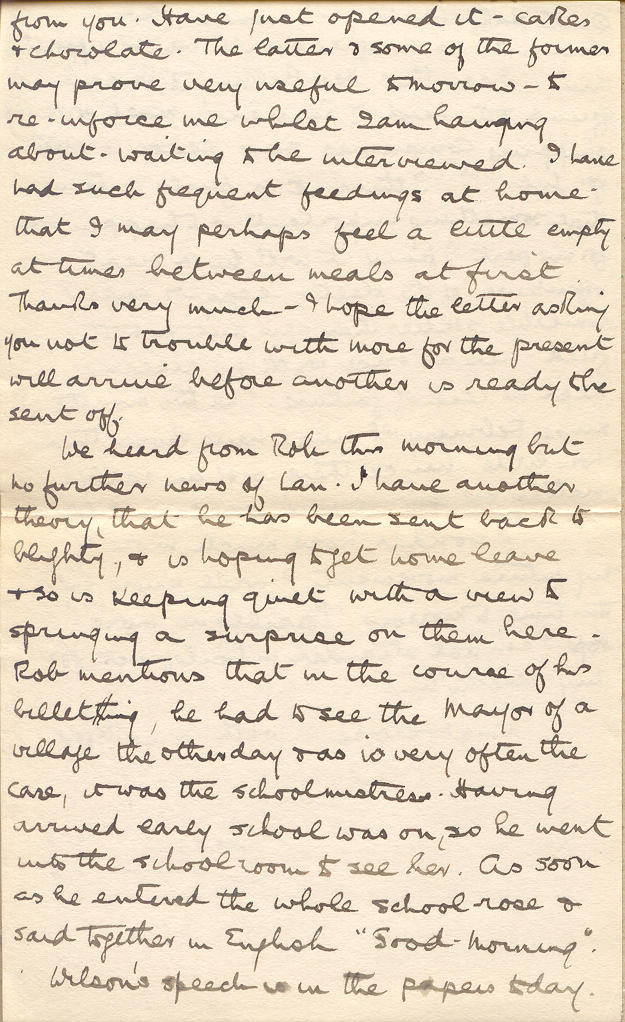 from you. Have just opened it - cakes
& chocolate. The latter & some of the former
may prove very useful tomorrow - to
re-inforce me whilst I am hanging
about - waiting to be interviewed. I have
had such frequent feedings at home -
that I may perhaps feel a little empty
at times between meals at first.
Thanks very much - I hope the letter asking
you not to trouble with more for the present
will arrive before another is ready to be
sent off.
We heard from Rob this morning but
no further news of Ian. I have another
theory, that he has been sent back to
blighty, & is hoping to get home leave
& so is keeping quiet with a view to
springing a surprise on them here -
Rob mentions that in the course of his
billetting, he had to see the Mayor of a
village the other day & as is very often the
case, it was the schoolmistress. Having
arrived early school was on, so he went
into the schoolroom to see her. As soon
as he entered the whole school rose &
said together in English "Good-Morning".
Wilson's speech is in the papers today.